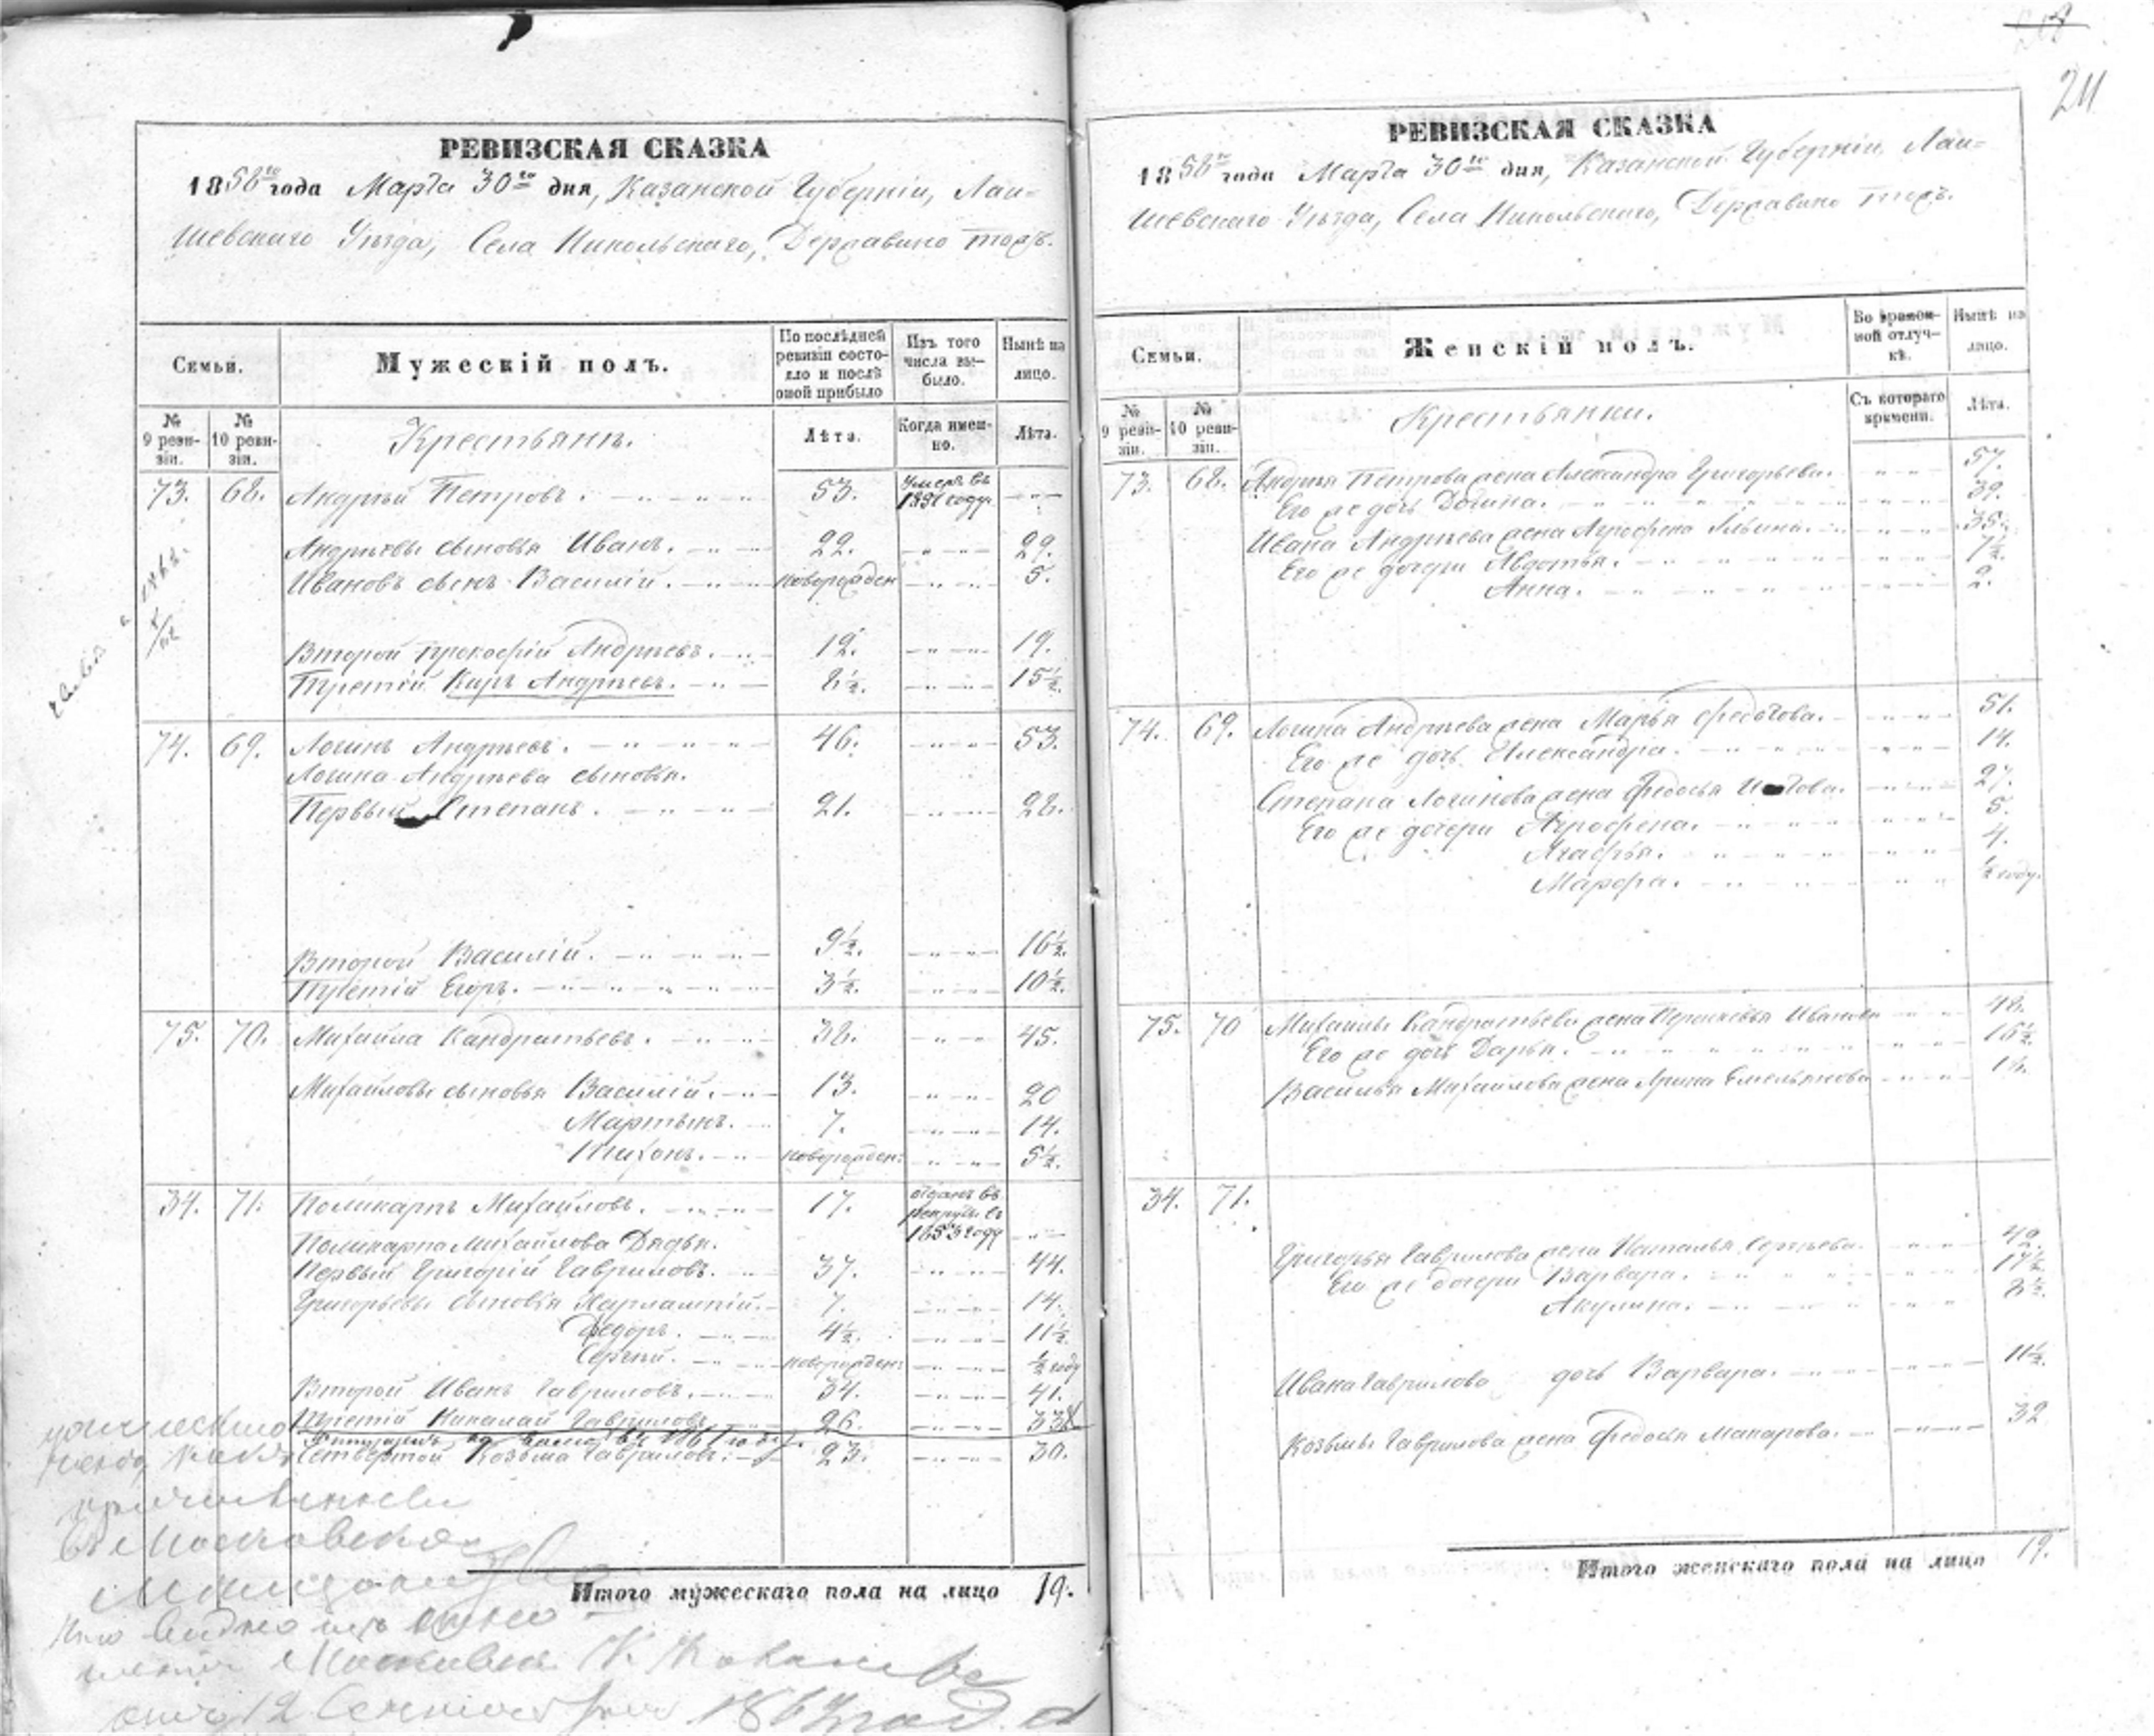 211
РЕВИЗСКАЯ СКАЗКА
1858го года Марта 30го дня, Казанской Губерніи, Лаи-
шевскаго Уѣзда, Села Никольскаго, Державино тожъ.
Семьи.
Мужескій полъ.
По послѣдней ревизіи состояло и послѣ оной прибыло
Изъ того числа выбыло.
Нынѣ на лицо.
№ 9 ревизіи.
№ 10 ревизіи.
Крестьянъ.
Лѣта.
Когда именно.
Лѣта.
73. 68. Андрей Петровъ. 53. Умеръ въ 1851 году.
Андреевы сыновья Иванъ. 22. 29.
Ивановъ сынъ Василій. новорожден 5.
Второй Прокофій Андреевъ. 12. 19.
Третій Киръ Андреевъ. 8½. 15½.
74. 69. Логинъ Андреевъ. 46. 53.
Логина Андреева сыновья.
Первый Степанъ. 21. 28.
Второй Василій. 9½. 16½.
Третій Егоръ. 3½. 10½.
75. 70. Михайла Кандратьевъ. 38. 45.
Михайловы сыновья Василій. 13. 20
Мартынъ. 7. 14.
Тихонъ. новорожден: 5½.
34. 71. Поликарпъ Михайловъ. 17. отданъ въ рекруты въ 1853 году
Поликарпа Михайлова Дядья.
Первый Григорій Гавриловъ. 37. 44.
Григорьевы сыновья Харлампій. 7. 14.
Федоръ. 4½. 11½.
Сергей. новорожден: ½ году
Второй Иванъ Гавриловъ. 34. 41.
Третій Николай Гавриловъ. 26. 33
Четвертой Козьма Гавриловъ. 23. 30.
Итого мужескаго пола на лицо 19.
РЕВИЗСКАЯ СКАЗКА
1858го года Марта 30го дня, Казанской Губерніи, Лаи-
шевскаго Уѣзда, Села Никольскаго, Державино тожъ.
Семьи.
Женскій полъ.
Во временной отлучкѣ.
Нынѣ на лицо.
№ 9 ревизіи.
№ 10 ревизіи.
Крестьянки.
Съ котораго времени.
Лѣта.
73. 68. Андрея Петрова жена Александра Григорьева. 57.
Его же дочь Домина. 39.
Ивана Андреева жена Агрофена Ильина. 35.
Его же дочери Авдотья. 7½.
Анна. 2.
74. 69. Логина Андреева жена Марья Федотова. 51.
Его же дочь Александра. 14.
Степана Логинова жена Федосья 27.
Его же дочери Агрофена. 5.
Агафья. 4.
Марфа. ½ году.
75. 70 Михайлы Кандратьева жена Прасковья Иванова 48.
Его же дочь Дарья. 16½.
Василья Михайлова жена Арина Емельянова 18.
34. 71.
Григорья Гаврилова жена Наталья Сергеева. 42.
Его же дочери Варвара. 17½.
Акулина. 8½.
Ивана Гаврилова дочь Варвара. 11½.
Козьмы Гаврилова жена Федосья Макарова. 32
Итого женскаго пола на лицо 19.